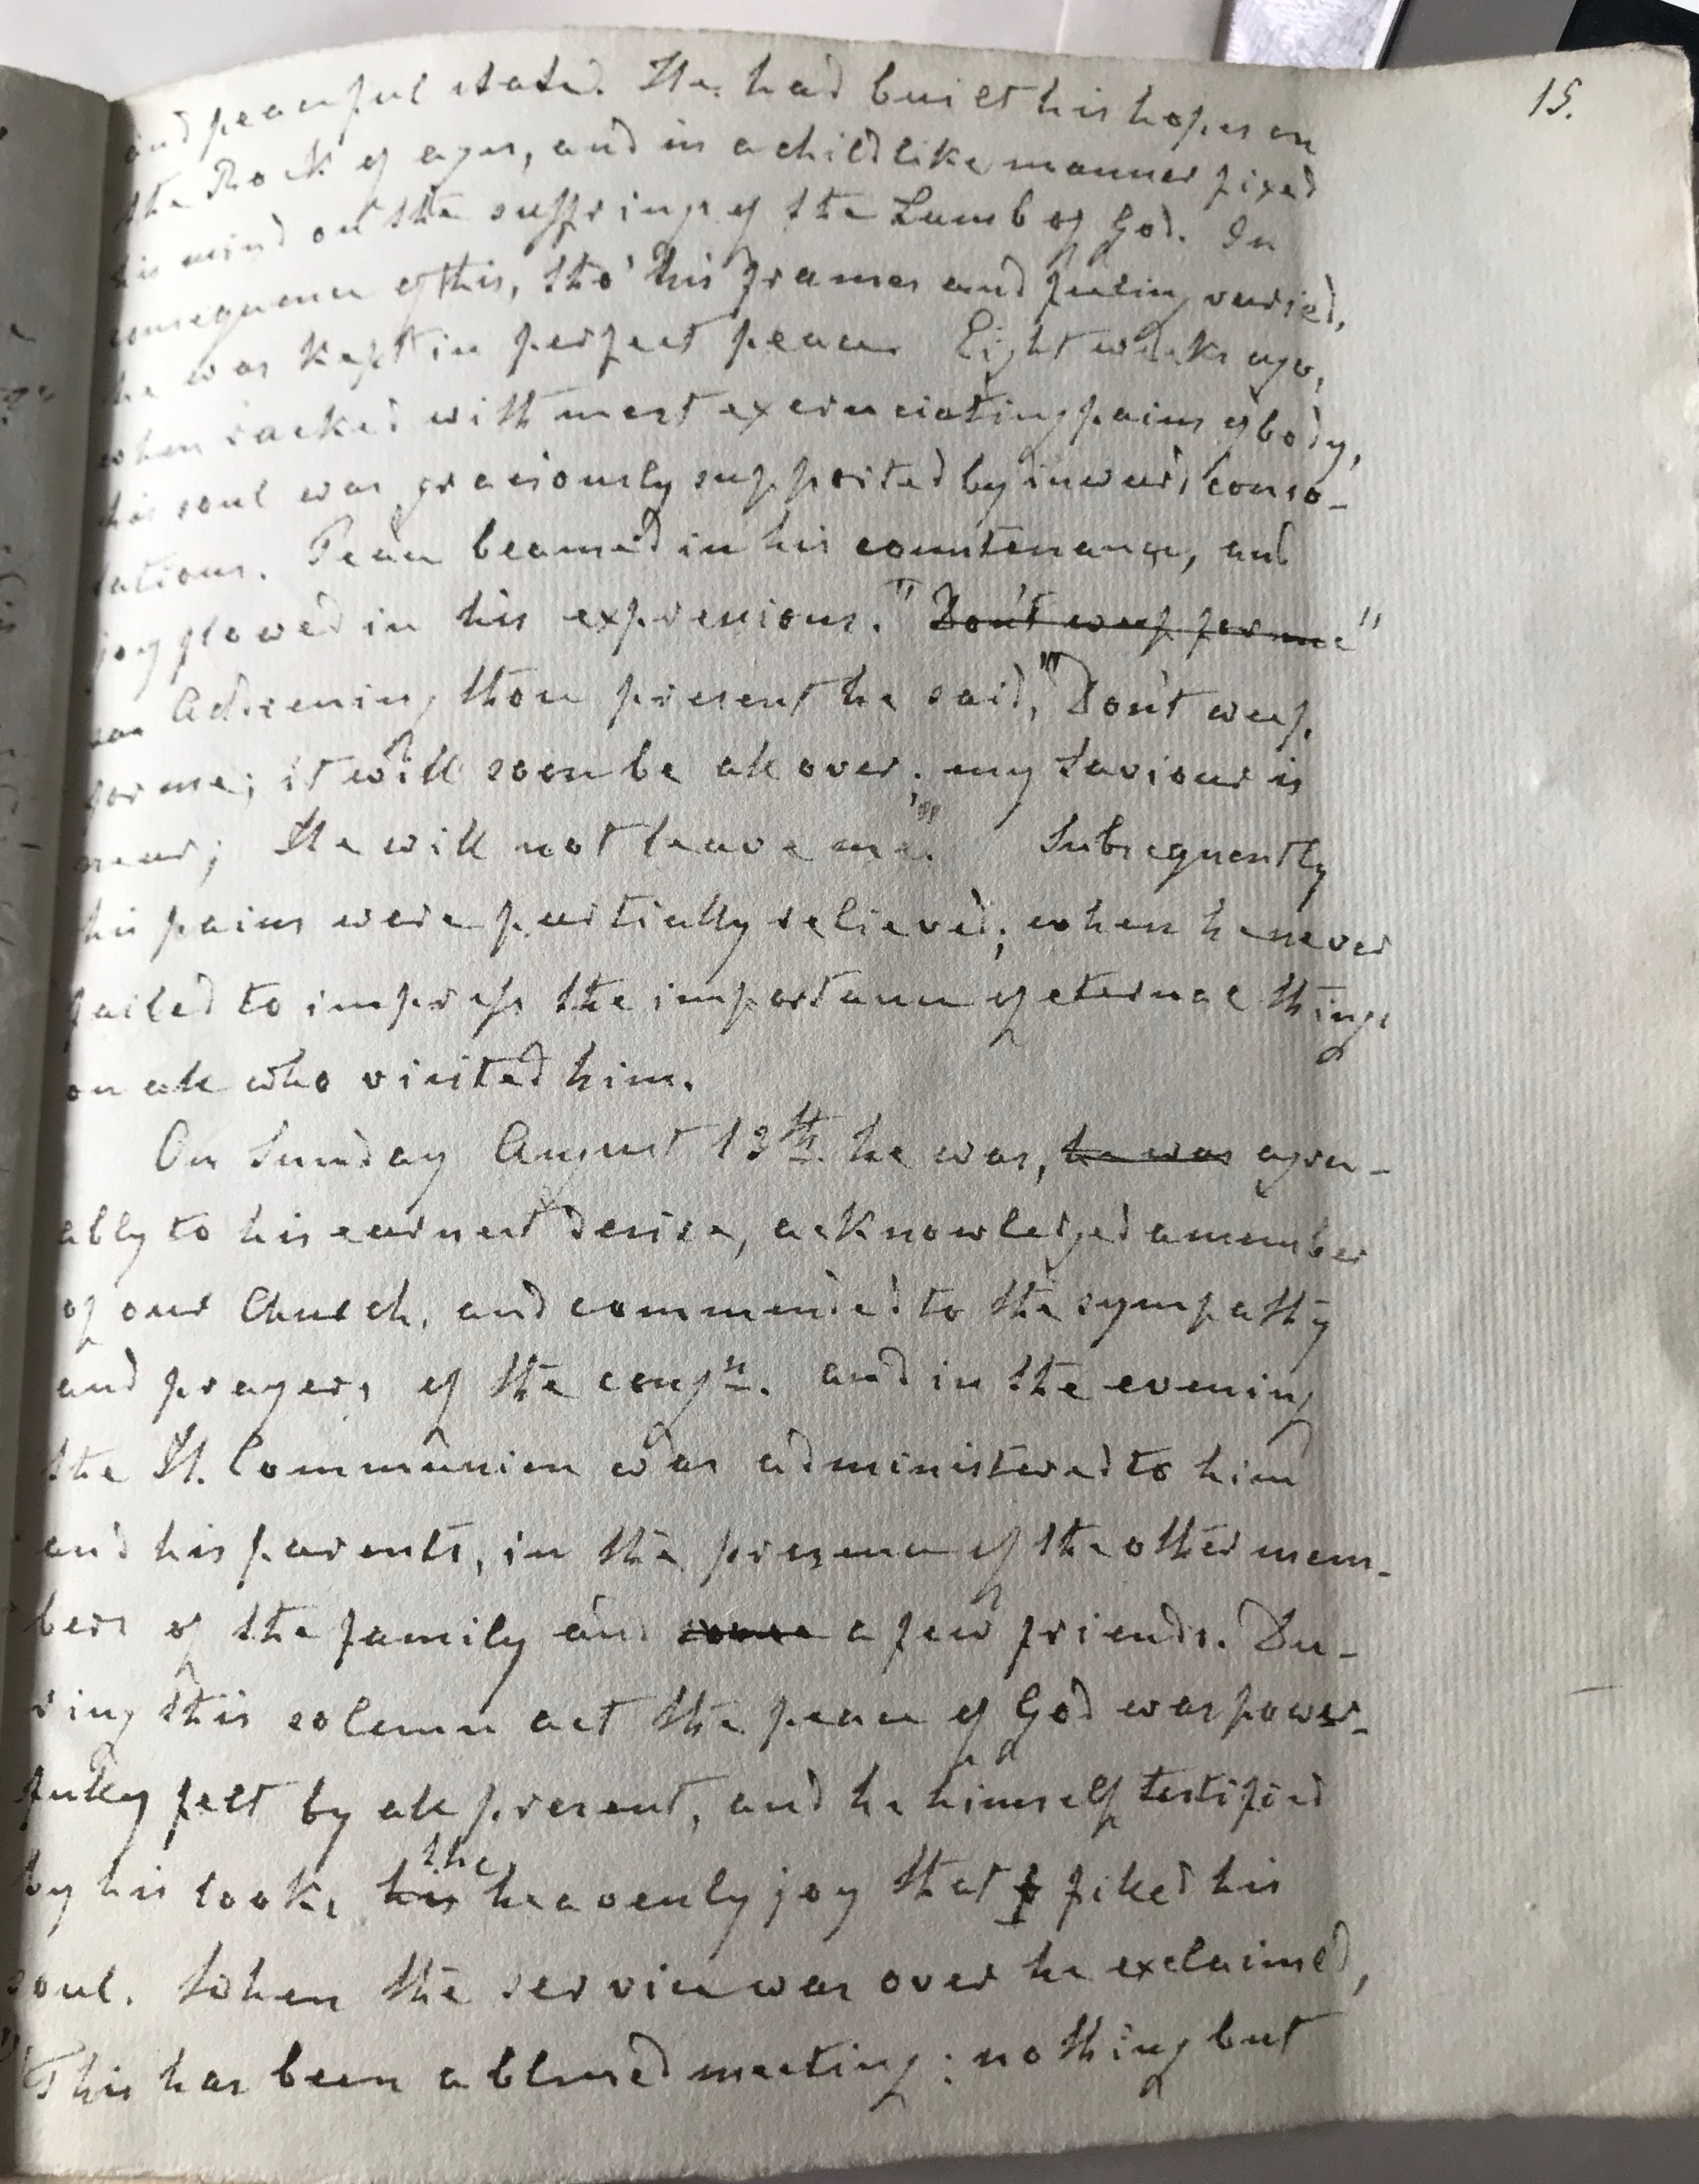 15.
and peaceful state. He had built his hopes on
the Rock of ages, and in a childlike manner fixed
his mind on the suffrings of the Lamb of God. In
consequence of this, tho' his frames and feeling varied,
he was kept in perfect peace. Eight weeks ago,
when racked with most excruciating pains of body,
his soul was graciously supported by inward conso-
lations. Peace beamed in his countenance, and
joy glowed in his expressions. "Don't weep for me"
Addressing those present he said, "Don't weep
for me; it will soon be all over; my Saviour is
near; He will not leave me." Subsequently
his pains were partially relieved; when he never
failed to impress the importance of eternal things
on all who visited him.
On Sunday August 13th. he was, he was agree-
ably to his earnest desire, acknowledged a member
of our Church, and commended to the sympathy
and prayers of the congn. and in the evening
the H. Communion was administered to him
and his parents, in the presence of the other mem-
bers of the family and some a few friends. Du-
ring this solemn act the peace of God was power-
fully felt by all present, and he himself testified
the
by his looks his heavenly joy that f filled his
soul. When the service was over he exclaimed,
"This has been a blessed meeting: nothing but